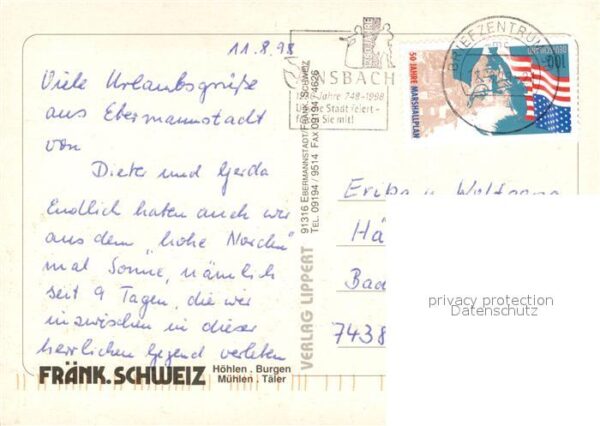 11.8.98
Viele Urlaubsgrüße
aus Ebermannstadt
von
Dieter und Gerda
Endlich haben auch wir
aus dem "hohe Norden"
mal Sonne, nämlich
seit 9 Tagen, die wir
inzwischen in dieser
herrlichen Gegend verleben
FRÄNK. SCHWEIZ
Höhlen . Burgen
Mühlen . Täler
VERLAG LIPPERT
91316 EBERMANNSTADT/FRÄNK. SCHWEIZ
TEL. 09194 / 9514 FAX 09194 / 4626
ANSBACH
Jahre 748-1998
Stadt feiert -
Sie mit!
BRIEFZENTRUM
50 JAHRE MARSHALLPLAN
DEUTSCHLAND
100
Erika u. Wolfgang
Hä
Bad
7438
privacy protection
Datenschutz